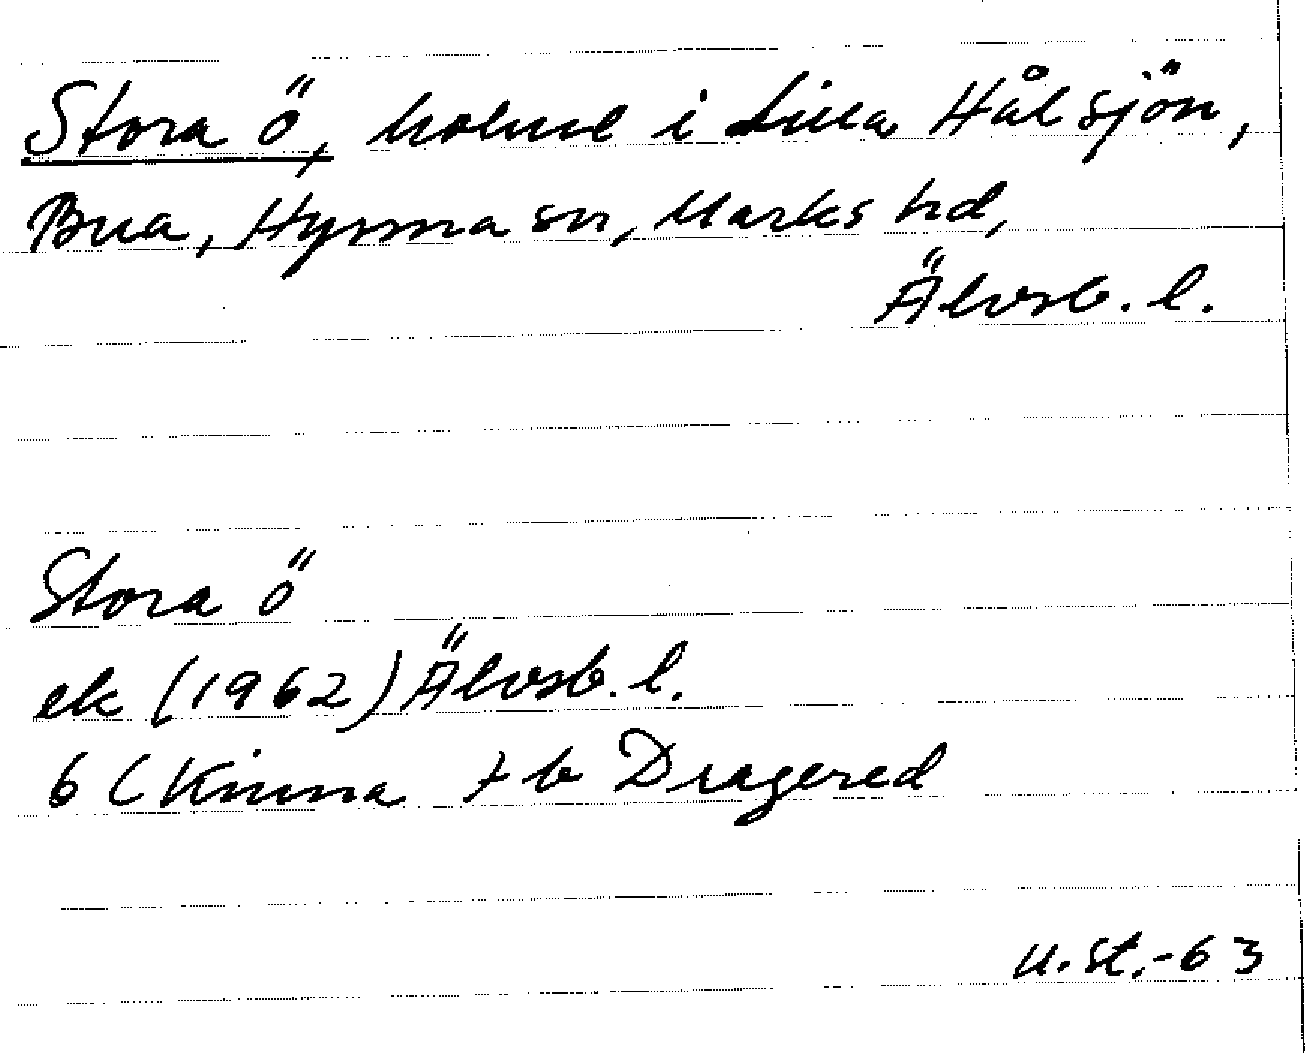 Stora ö, holme i Lilla Hålsjön,
Bua, Hyssna sn, Marks hd,
Älvsb. l.
Stora ö
ek (1962) Älvsb. l.
6 C Kinna + b Dragered
U. St. -63